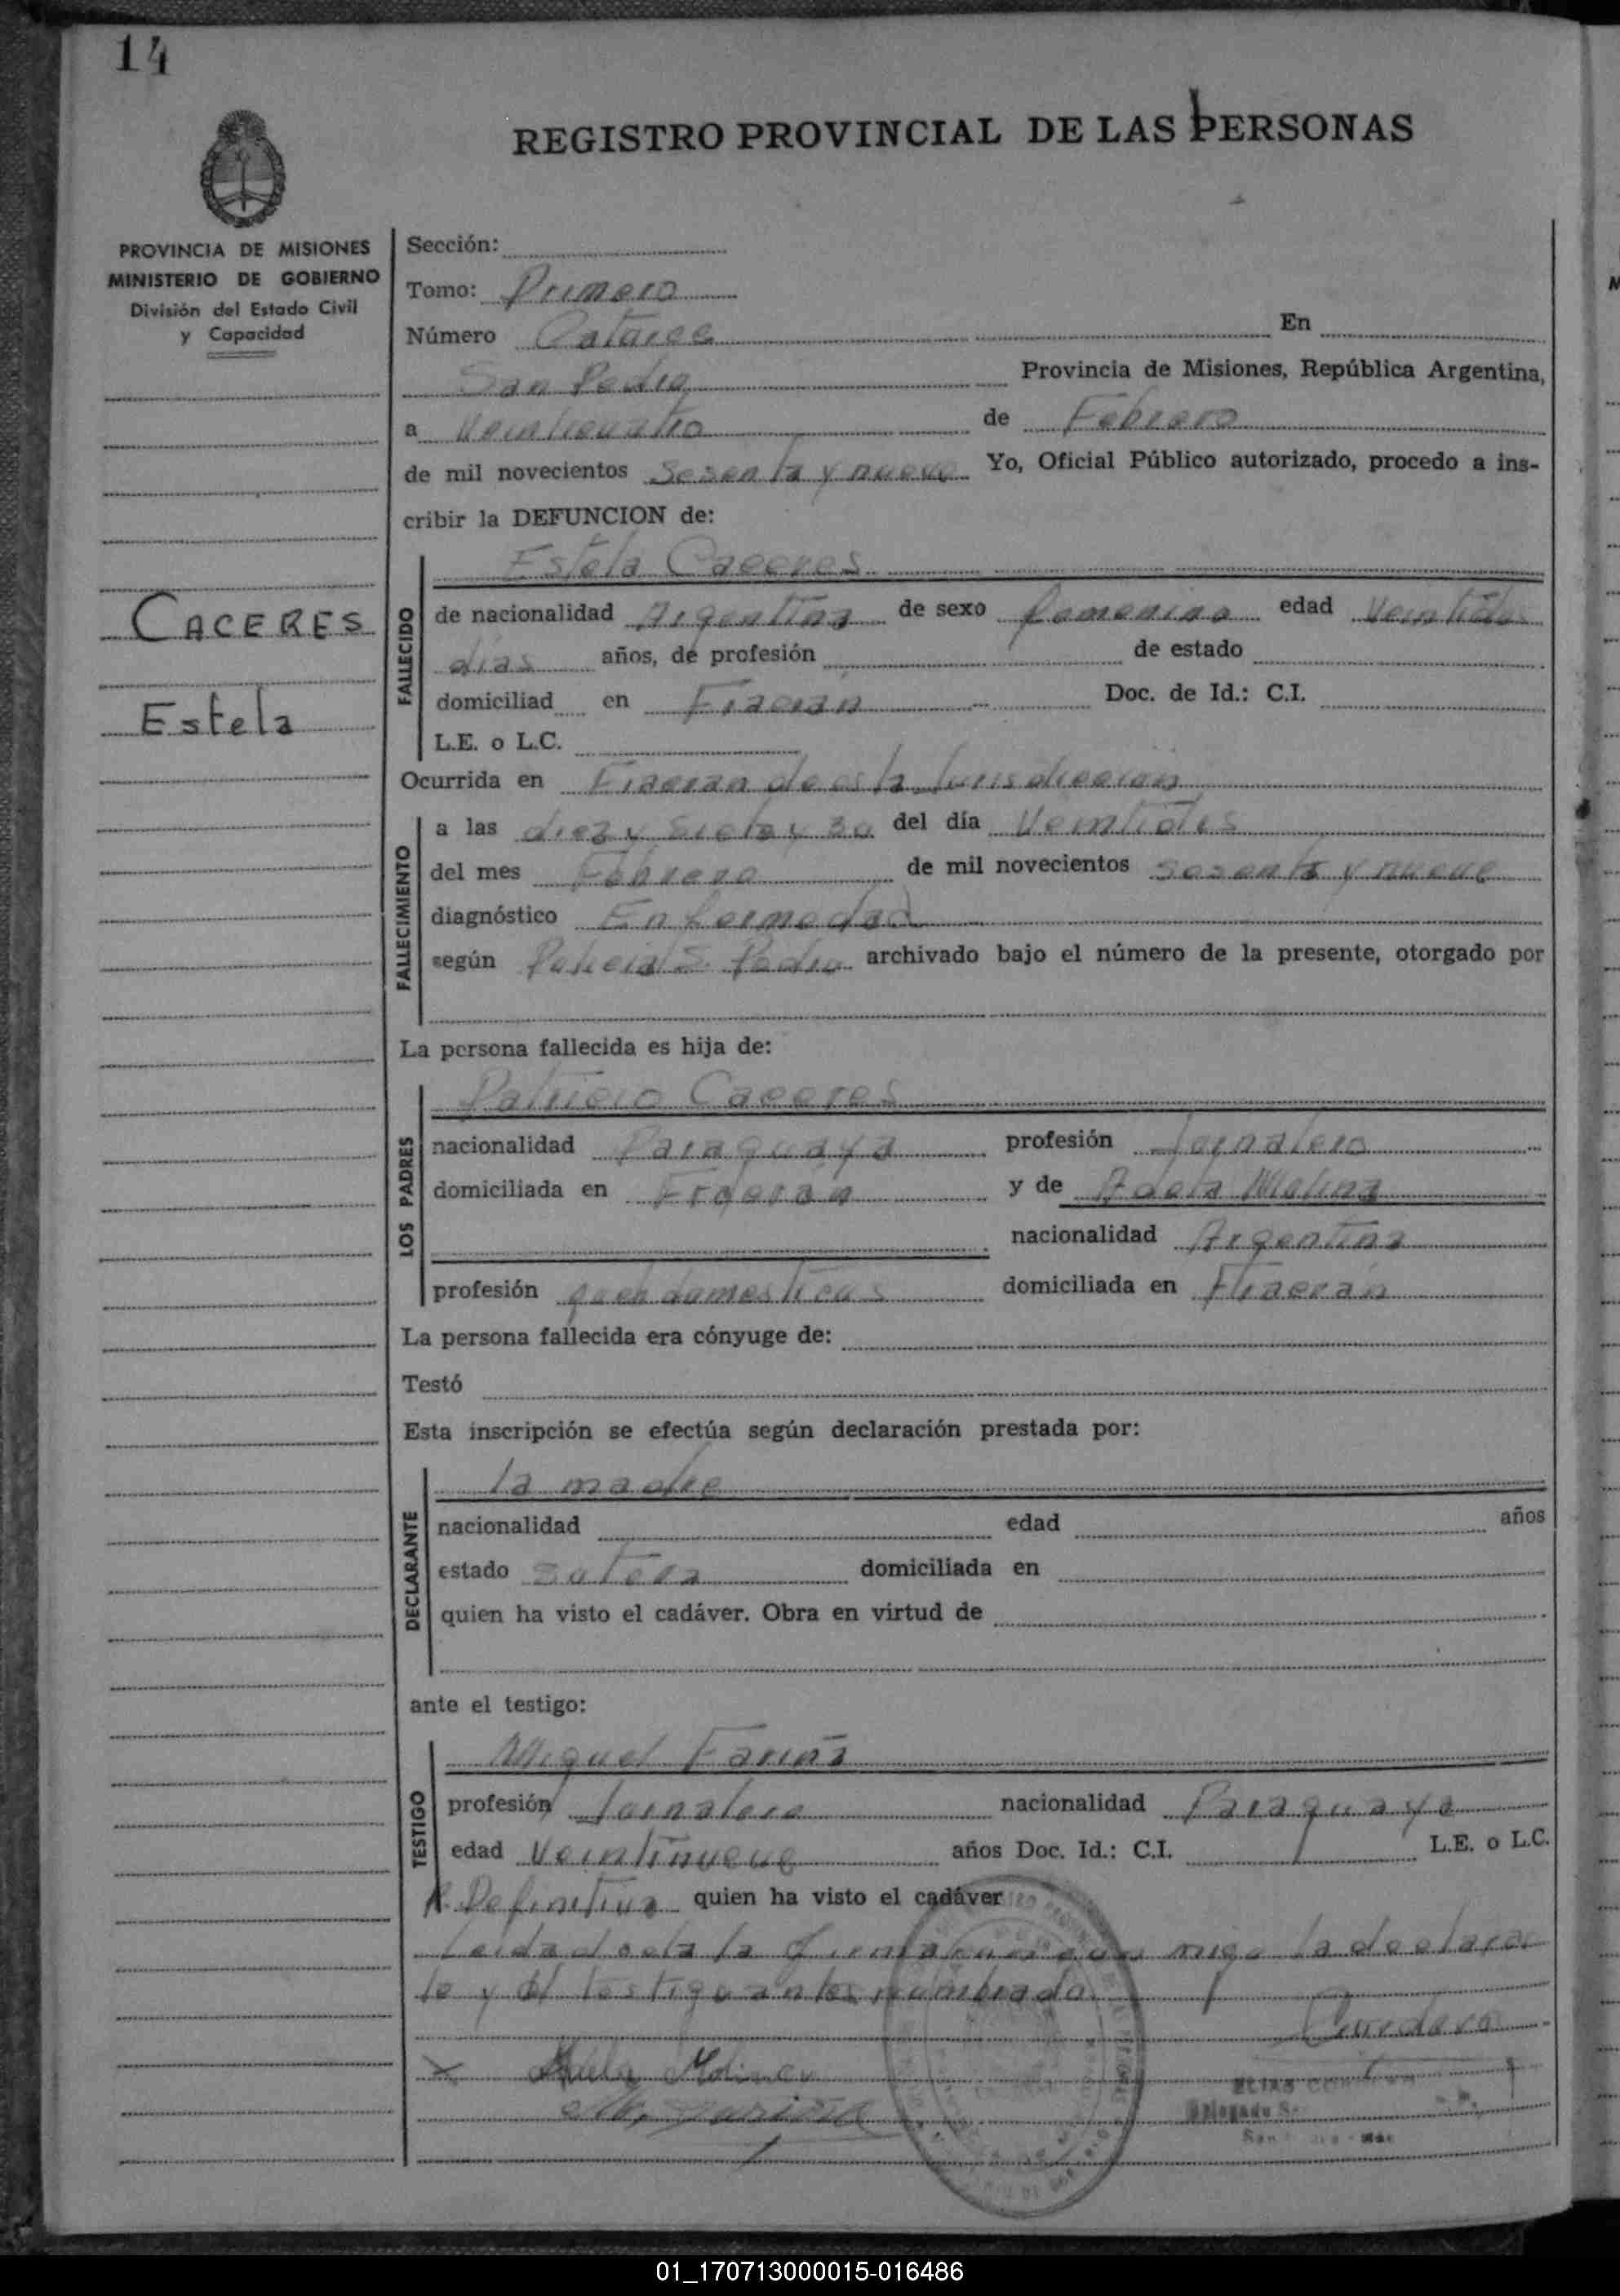 14
REGISTRO PROVINCIAL DE LAS PERSONAS
PROVINCIA DE MISIONES
MINISTERIO DE GOBIERNO
División del Estado Civil
y Capacidad
CACERES
Estela
Sección:
Tomo: Primero
Número Catorce En
San Pedro Provincia de Misiones, República Argentina,
a Veinticuatro de Febrero
de mil novecientos Sesenta y nueve Yo, Oficial Público autorizado, procedo a ins-
cribir la DEFUNCION de:
FALLECIDO
Estela Caceres
de nacionalidad Argentina de sexo femenino edad Veintidos
dias años, de profesión de estado
domiciliad en Fracran Doc. de Id.: C.I.
L.E. o L.C.
Ocurrida en Fracran de esta Jurisdiccion
FALLECIMIENTO
a las diez y Siete y 30 del día Veintidos
del mes Febrero de mil novecientos sesenta y nueve
diagnóstico Enfermedad
según Policial S. Pedro archivado bajo el número de la presente, otorgado por
La persona fallecida es hija de:
LOS PADRES
Patricio Caceres
nacionalidad Paraguaya profesión Jornalero
domiciliada en Fracran y de Adela Molina
nacionalidad Argentina
profesión queh domesticos domiciliada en Fracran
La persona fallecida era cónyuge de:
Testó
Esta inscripción se efectúa según declaración prestada por:
DECLARANTE
la madre
nacionalidad edad años
estado soltera domiciliada en
quien ha visto el cadáver. Obra en virtud de
ante el testigo:
TESTIGO
Miguel Fariña
profesión Jornalero nacionalidad Paraguaya
edad Veintinueve años Doc. Id.: C.I. L.E. o L.C.
R. Definitiva quien ha visto el cadáver
Leida el acta la firmaron con migo la declaran
te y el testigo antes nombrado
Adela Molina
M. Fariña
ELIAS
Delegado
San
01_170713000015-016486